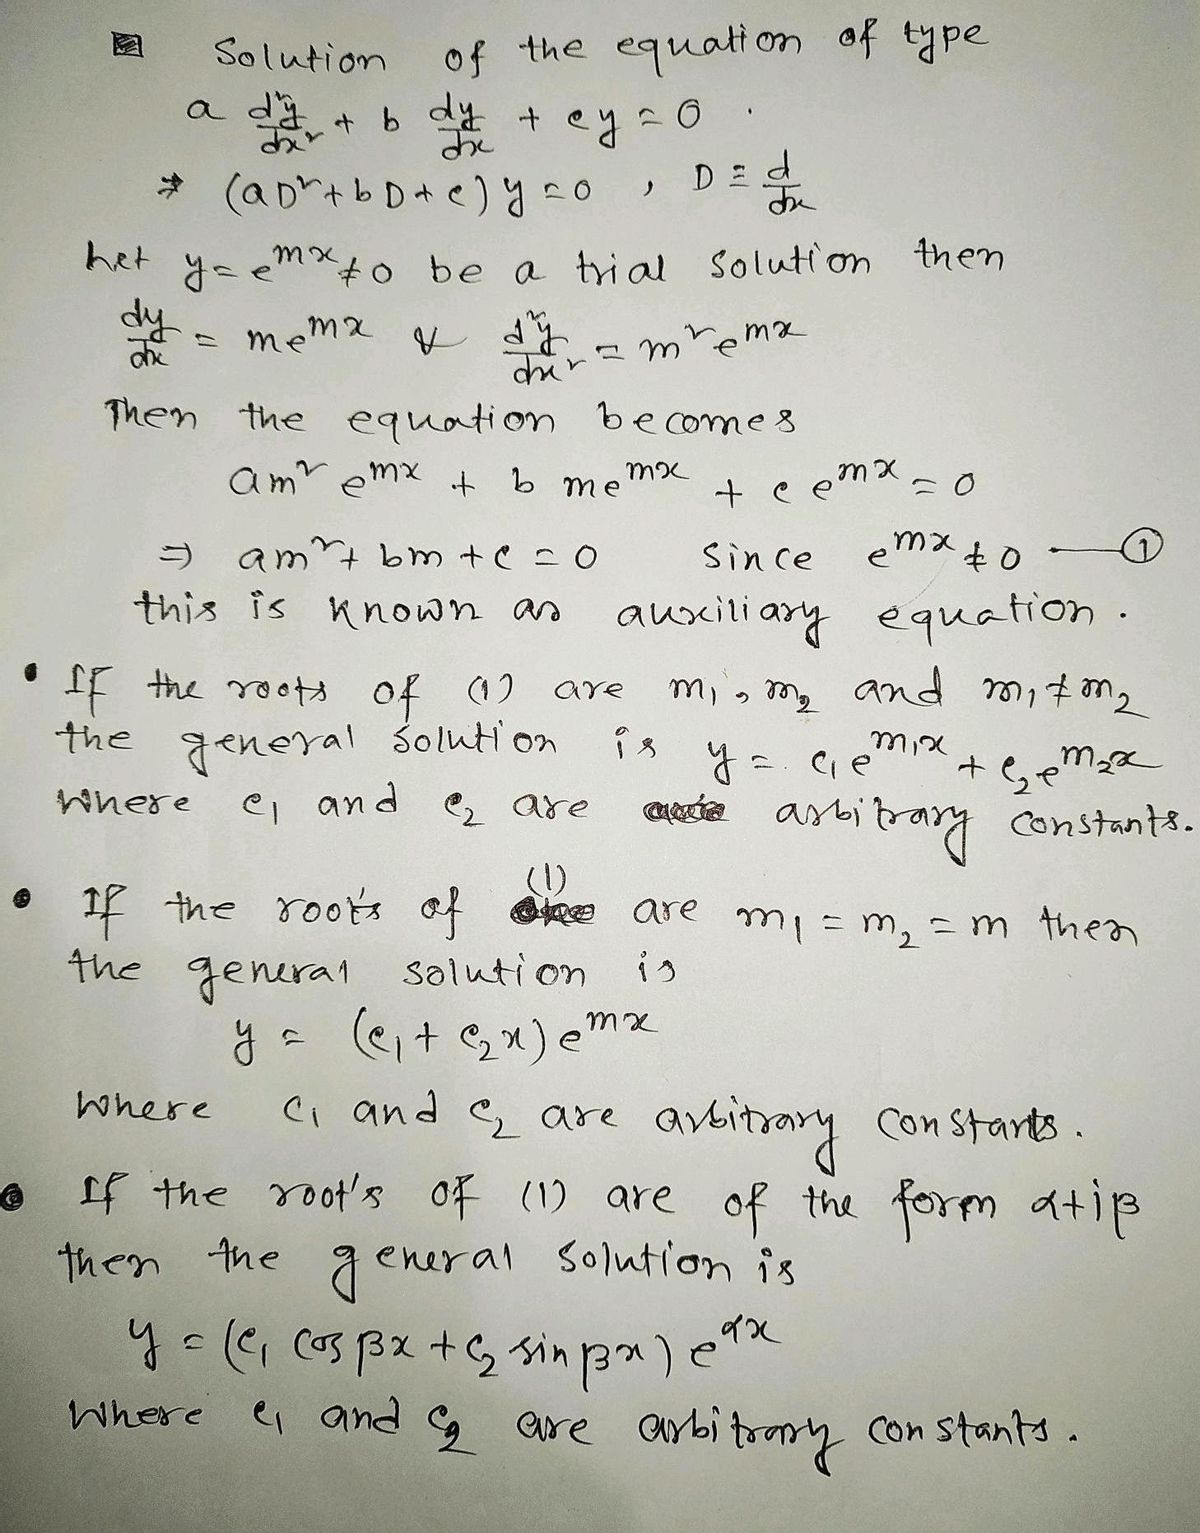 Solution of the equation of type
a d²y/dx² + b dy/dx + cy = 0 .
⇒ (aD² + bD + c) y = 0 , D ≡ d/dx
Let y = e^{mx} ≠ 0 be a trial solution then
dy/dx = me^{mx} & d²y/dx² = m²e^{mx}
Then the equation becomes
am² e^{mx} + b me^{mx} + c e^{mx} = 0
⇒ am² + bm + c = 0 since e^{mx} ≠ 0 — ①
this is known as auxiliary equation .
• If the roots of (1) are m₁, m₂ and m₁ ≠ m₂
the general solution is y = c₁e^{m₁x} + c₂e^{m₂x}
where c₁ and c₂ are arbitrary constants.
• If the root's of (1) are m₁ = m₂ = m then
the general solution is
y = (c₁ + c₂x) e^{mx}
where c₁ and c₂ are arbitrary constants .
• If the root's of (1) are of the form α+iβ
then the general solution is
y = (c₁ cos βx + c₂ sin βx) e^{αx}
where c₁ and c₂ are arbitrary constants .